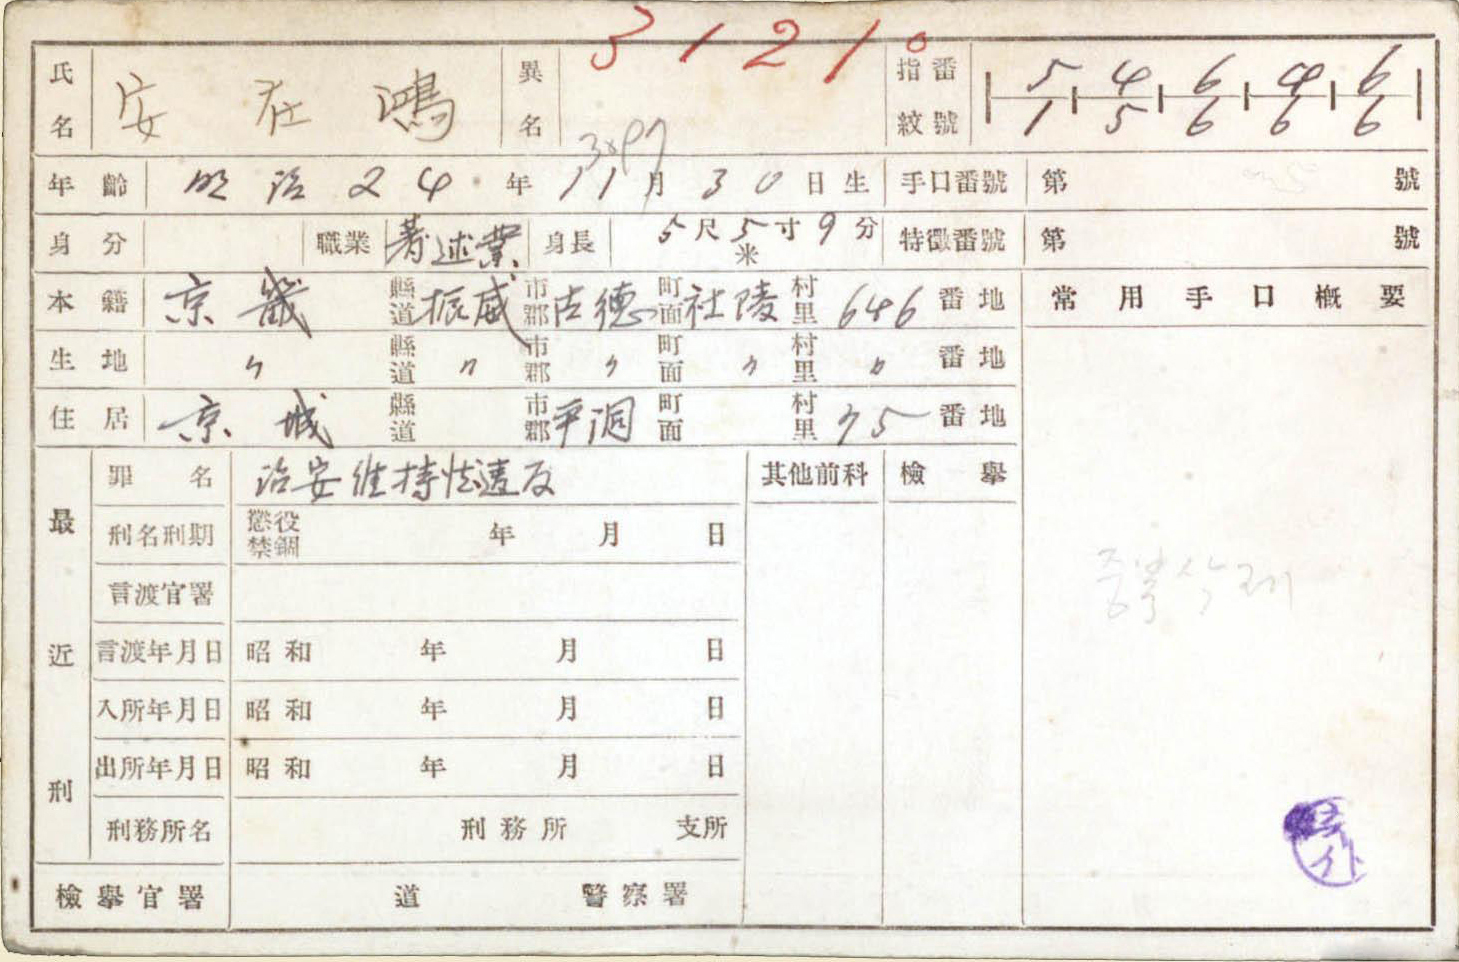 31210
氏名 安在鴻 異名 指紋番號 5 4 6 4 6
1 5 6 6 6
年齡 明治24年11月30日生 手口番號 第 號
身分 職業 著述業 身長 5尺5寸9分 米 特徵番號 第 號
本籍 京畿 縣道 振威 市郡 古德 町面 社陵 村里 646 番地 常用手口槪要
生地 〃 縣道 〃 市郡 〃 町面 〃 村里 〃 番地
住居 京城 縣道 市郡 平洞 町面 村里 75 番地
最近刑 罪名 治安維持法違反 其他前科 檢擧
刑名刑期 懲役 禁錮 年 月 日
言渡官署
言渡年月日 昭和 年 月 日
入所年月日 昭和 年 月 日
出所年月日 昭和 年 月 日
刑務所名 刑務所 支所
檢擧官署 道 警察署